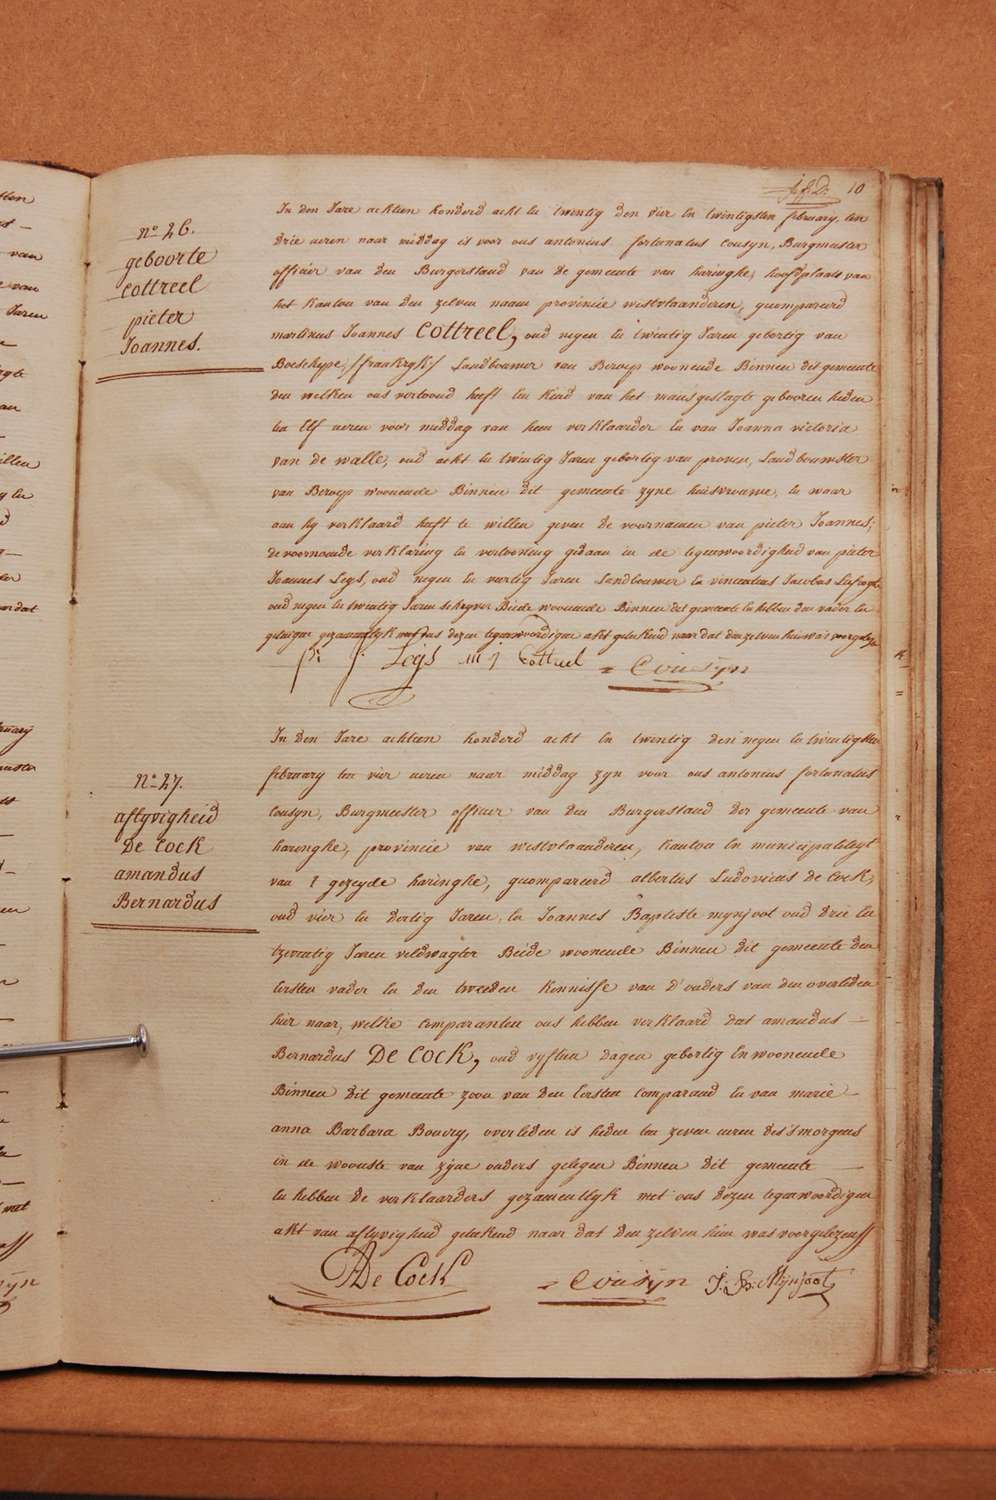 10
n.o 26.
geboorte
Cottreel
pieter
Joannes.
In den Jare achtien honderd acht en twintig den vier en twintigsten february, ten
drie uren naar middag is voor ons antonius fortunatus Cousyn, Burgmeester
officier van den Burgerstand van de gemeente van haringhe, hoofdplaats van
het kanton van den zelven naem provincie westvlaanderen, gecompareerd
martinus Joannes Cottreel, oud negen en twintig Jaren gebortig van
Boeschepe, /frankryk/ Landbouwer van Beroep woonende Binnen dit gemeente
den welken ons vertoond heeft een kind van het mansgeslagte gebooren heden
ten Elf uren voor middag van hem verklaarder en van Joanna victoria
van de walle, oud acht en twintig Jaren gebortig van proven, Landbouwster
van Beroep woonende Binnen dit gemeente zyne huisvrouwe, en waar
aan hy verklaard heeft te willen geven de voornamen van pieter Joannes;
de voornoemde verklaring en vertooning gedaan in de tegenwoordigheid van pieter
Joannes Leys, oud negen en veertig Jaren Landbouwer en vincentius Jacobus
oud negen en twintig Jaren schryver Beide woonende Binnen dit gemeente en hebben den vader en
getuigen gezamentlyk met ons dezen tegenwoordigen akt geteekend naar dat den zelven hun was voorgelezen
Pi J: Leÿs M J Cottreel = Cousÿn
n.o 27.
aflyvigheid
De Cock
amandus
Bernardus
In den Jare achtien honderd acht en twintig den negen en twintigsten
february ten vier uren naar middag zyn voor ons antonius fortunatus
Cousyn, Burgmeester officier van den Burgerstand der gemeente van
haringhe, provincie van westvlaanderen, kanton en municipaliteyt
van t gezeyde haringhe, gecompareerd albertus Ludovicus de Cock,
oud vier en dertig Jaren, en Joannes Baptiste mynjoot oud drie en
tzeventig Jaren veldwagter Beide woonende Binnen dit gemeente den
Eersten vader en den tweeden kennisse van d'ouders van den overleden
hier naar, welke comparanten ons hebben verklaard dat amandus
Bernardus De Cock, oud vyftien dagen gebortig En woonende
Binnen dit gemeente zoon van den Eersten comparand en van marie
anna Barbara Boury, overleden is heden ten zeven uren des 's morgens
in de wooniste van zyne ouders gelegen Binnen dit gemeente
en hebben de verklaarders gezamentlyk met ons dezen tegenwoordigen
akt van aflyvigheid geteekend naar dat den zelven hun was voorgelezen //
De Cock = Cousÿn J: B: Mijnjoot